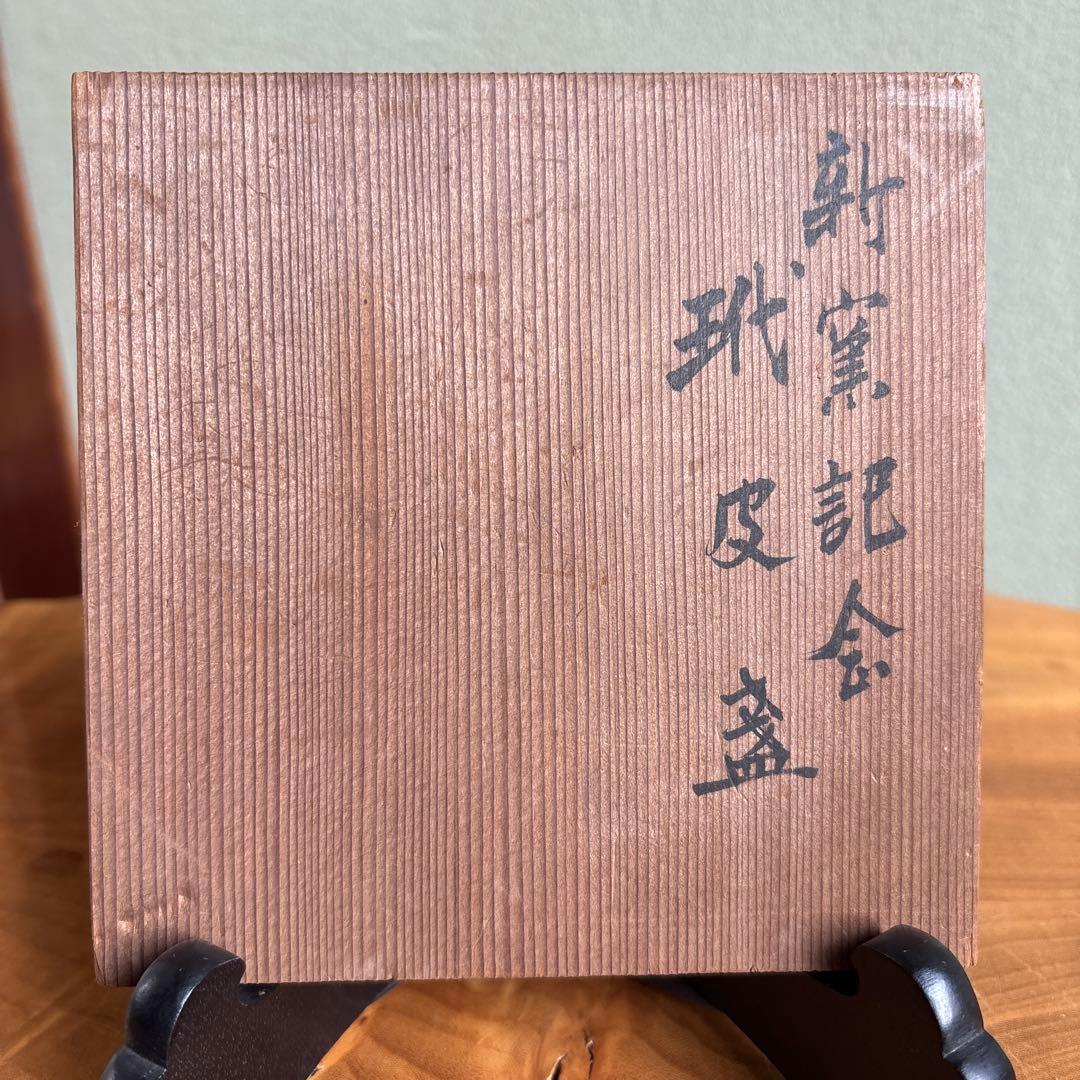 新窯記念
玳皮盞